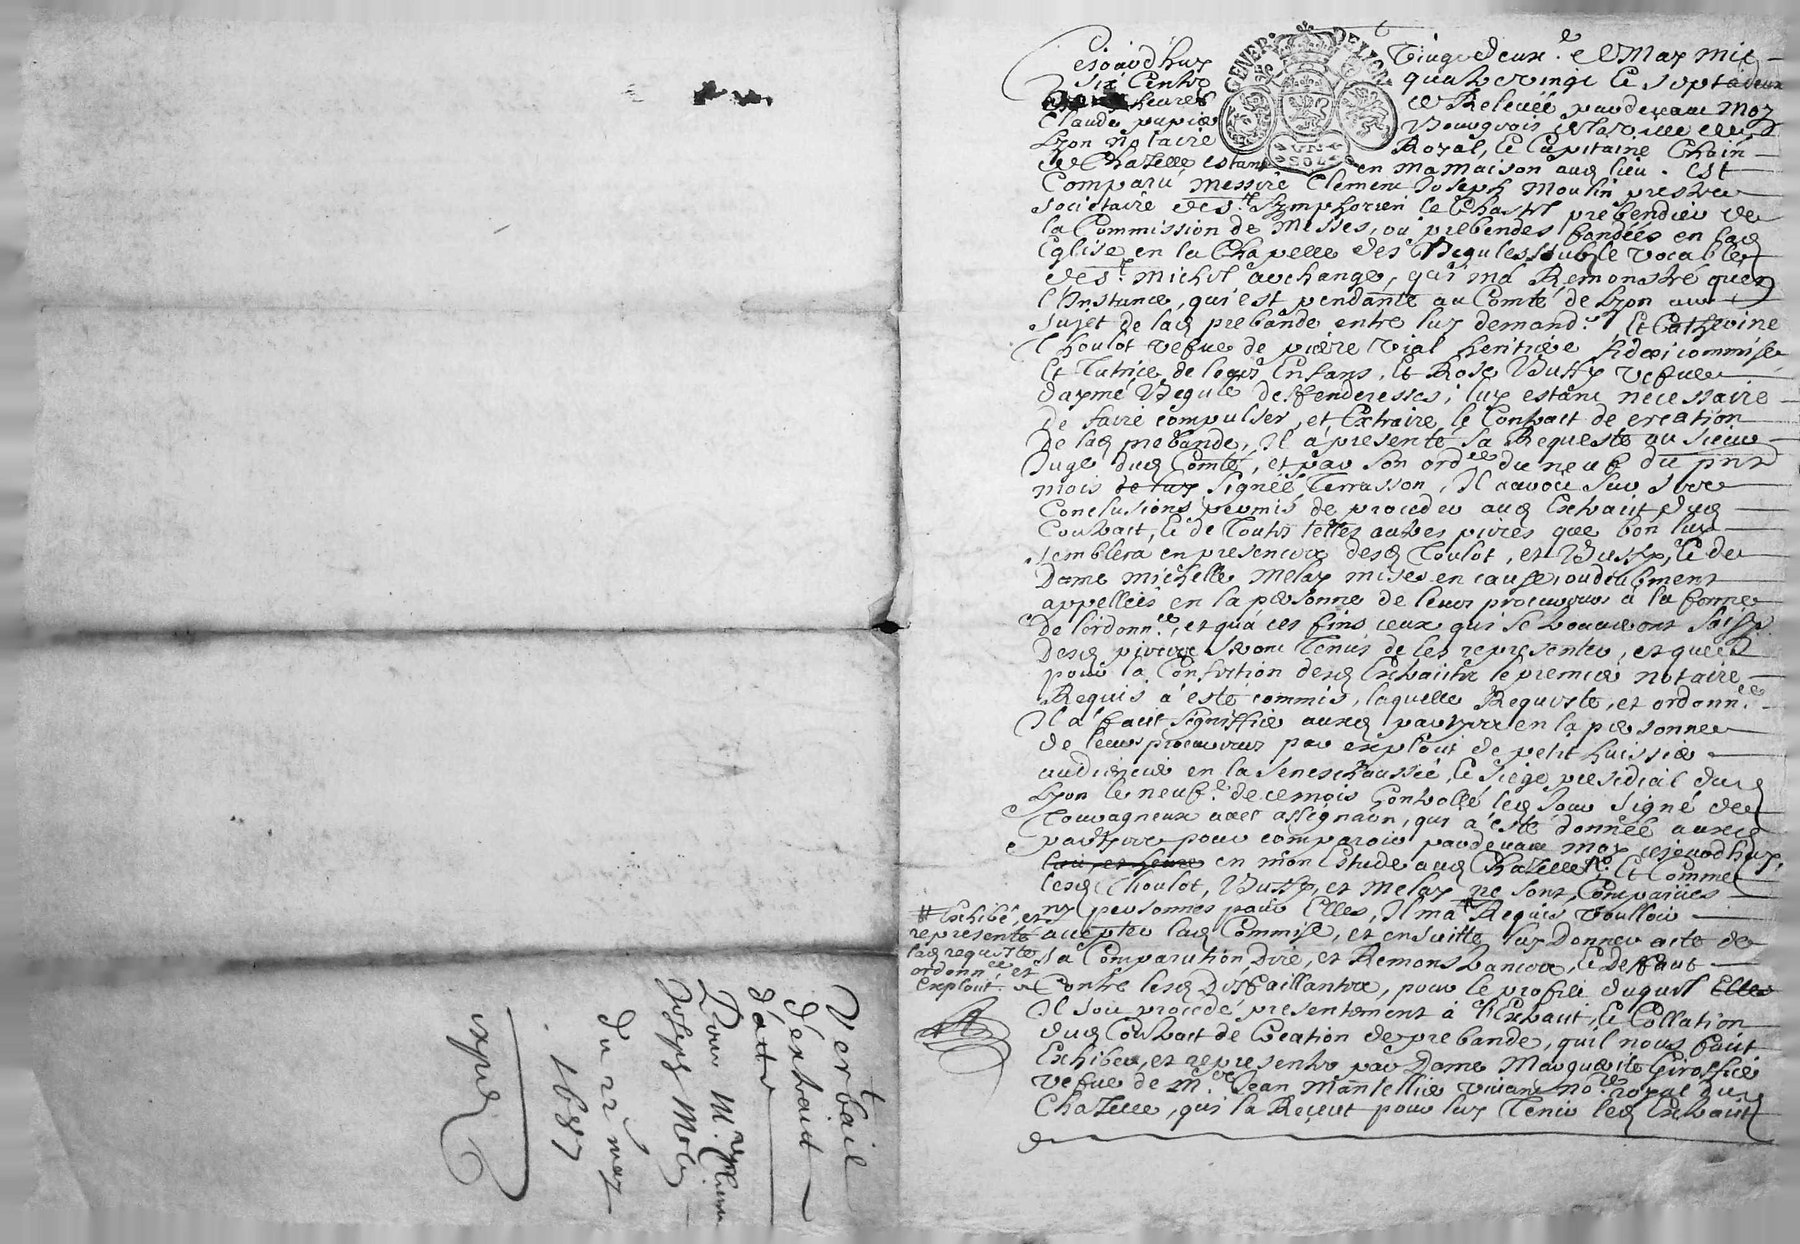 Cejourdhuy vingt deux.e de May mil
six Centz quatre vingt et sept a deux
heures de Relevée pardevant Moy
Claude pupier Bourgeois de la ville de
Lyon notaire Royal, et Capitaine Chain
de Chazelle estant en ma maison aud lieu. est
Comparu messire Clement Joseph Moulin prestre
societaire de St. Symphorien le Chastel prebendier de
la Commission de Messes, ou prebendes fondées en lad
Eglise en la Chapelle des Begules soub le vocable
de St. Michel archange, qui m'a Remonstré quen
l'Instance, qui est pendante au Comté de Lyon au
sujet de lad prebande entre luy demand.r Et Catherine
Thoulot vefve de pierre Vial heritiere fideicommise
Et Tutrice de leurs Enfans, Et Rose Bussy vefve
daymé Begule deffenderesses; luy estant necessaire
de faire compulser, et Extraire le Contract de creation
de lad prebande, Il a presenté sa Requeste au sieur
Juge dud Comté, et par son ord.ce du neuf du pnt
mois de may signée Terrasson, Il auroit sur ses
Conclusions permis de proceder aud Extrait dud
Contrait, et de Toutes telles autres pieces que bon luy
semblera en presence desd Toulot, et Bussy, et de
Dame Michelle Melay mises en cause, ou deubment
appellées en la personne de leurs procureurs a la forme
de l'ordonn.ce, et qua ces fins ceux qui se trouveront saisis
desd pieces seront Tenus de les representer, et que
pour la Confection desd Extraits le premier notaire
Requis a esté commis, laquelle Requeste, et ordonn.ce
Il a fait signiffier auxd parties en la personne
de leurs procureurs par exploit de petit huissier
audiencier en la seneschaussée, et siege presidial dud
Lyon le neuf.e de ce mois Controllé led jour signé de
Touvagneux avec assignaon, qui a esté donnée auxd
parties pour comparoir pardevant moy cejourdhuy
lieu et heure en mon Estude aud Chazelle. Et Comme
lesd Thoulot, Bussy, et Melay ne sont Comparues
ny personnes pour Elles, Il m'a # Requis voulloir
accepter lad Commise, et ensuitte luy Donner acte de
sa Comparution, Dire, et Remonstrance, et Deffaut
Contre lesd Deffaillantes, pour le profit duquel Elles
Il soit procedé presentement à l'Extrait, et Collation
dud Contrait de Creation de prebande, quil nous fait
Exhiber, et representer par Dame Marguerite Giroffier
vefve de M.re Jean Mantellier vivant No.re royal dud
Chazelle, qui la Receut pour luy Tenir led Extrait
# Exhibé, et
represente
lad requeste
ordonn.ce et
exploit.
GENER. DE LYON
UN SOL
Verbail
dextrait
d'acte
Pour M.re Clement
Joseph Molin
du 22 may
1687
expedié